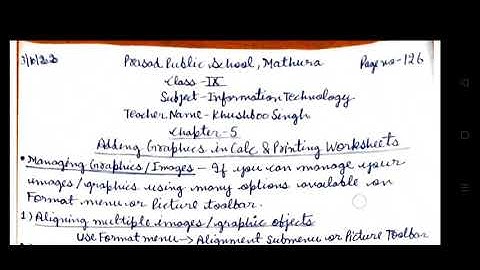 3/10/20 Prasad Public School, Mathura Page no-126
Class-IX
Subject-Information Technology
Teacher Name-Khushboo Singh
Chapter-5
Adding Graphics in Calc & Printing Worksheets
• Managing Graphics/Images - If you can manage your
images/graphics using many options available on
Format menu or Picture toolbar.
1) Aligning multiple images/graphic objects
Use Format menu → Alignment Submenu or Picture Toolbar